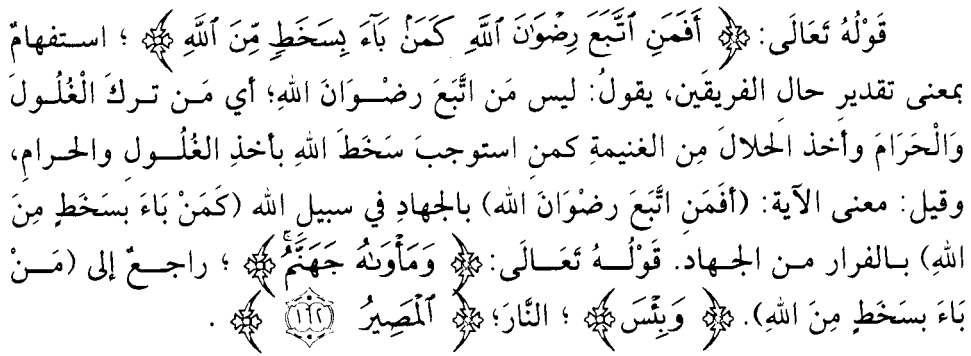 قَوْلُهُ تَعَالَى: ﴿ أَفَمَنِ ٱتَّبَعَ رِضْوَٰنَ ٱللَّهِ كَمَنۢ بَآءَ بِسَخَطٍ مِّنَ ٱللَّهِ ﴾ ؛ استفهامٌ
بمعنى تقديرِ حالِ الفريقَين، يقولُ: ليس مَن اتَّبَعَ رضْوَانَ اللهِ؛ أي مَن تركَ الْغُلُولَ
وَالْحَرَامَ وأخذ الحلالَ مِن الغنيمةِ كمنِ استوجبَ سَخَطَ اللهِ بأخذِ الغُلُولِ والحرامِ،
وقيل: معنى الآية: (أفَمَنِ اتَّبَعَ رضْوَانَ الله) بالجهادِ في سبيلِ الله (كَمَنْ بَاءَ بسَخَطٍ مِنَ
اللهِ) بالفرار من الجهاد. قَوْلُهُ تَعَالَى: ﴿ وَمَأْوَىٰهُ جَهَنَّمُ ۚ ﴾ ؛ راجعٌ إلى (مَنْ
بَاءَ بسَخَطٍ مِنَ اللهِ). ﴿ وَبِئْسَ ﴾ ؛ النَّارَ؛ ﴿ ٱلْمَصِيرُ ١٦٢ ﴾ .